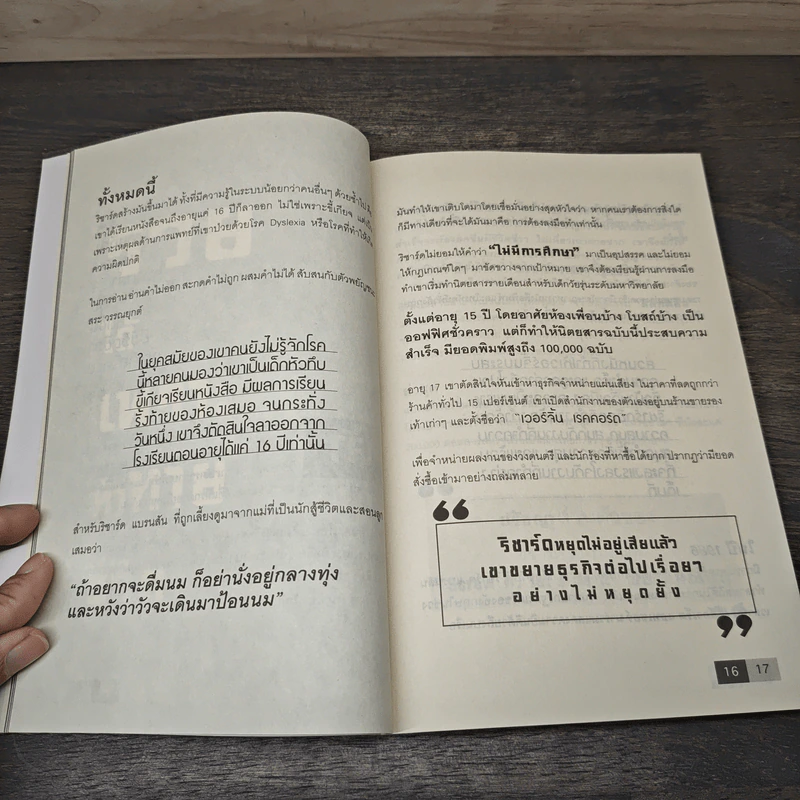 ทั้งหมดนี้
ริชาร์ดสร้างมันขึ้นมาได้ ทั้งที่มีความรู้ในระบบน้อยกว่าคนอื่นๆ ด้วยซ้ำไป
เขาได้เรียนหนังสือจนถึงอายุแค่ 16 ปีก็ลาออก ไม่ใช่เพราะขี้เกียจ แต่เป็น
เพราะเหตุผลด้านการแพทย์ที่เขาป่วยด้วยโรค Dyslexia หรือโรคที่ทำให้เกิด
ความผิดปกติ
ในการอ่าน อ่านคำไม่ออก สะกดคำไม่ถูก ผสมคำไม่ได้ สับสนกับตัวพยัญชนะ
สระ วรรณยุกต์
ในยุคสมัยของเขาคนยังไม่รู้จักโรค
นี้หลายคนมองว่าเขาเป็นเด็กหัวทึบ
ขี้เกียจเรียนหนังสือ มีผลการเรียน
รั้งท้ายของห้องเสมอ จนกระทั่ง
วันหนึ่ง เขาจึงตัดสินใจลาออกจาก
โรงเรียนตอนอายุได้แค่ 16 ปีเท่านั้น
สำหรับริชาร์ด แบรนสัน ที่ถูกเลี้ยงดูมาจากแม่ที่เป็นนักสู้ชีวิตและสอนลูก
เสมอว่า
“ถ้าอยากจะดื่มนม ก็อย่านั่งอยู่กลางทุ่ง
และหวังว่าวัวจะเดินมาป้อนนม”
มันทำให้เขาเติบโตมาโดยเชื่อมั่นอย่างสุดหัวใจว่า หากคนเราต้องการสิ่งใด
ก็มีทางเดียวที่จะได้มันมาคือ การต้องลงมือทำเท่านั้น
ริชาร์ดไม่ยอมให้คำว่า “ไม่มีการศึกษา” มาเป็นอุปสรรค และไม่ยอม
ให้กฎเกณฑ์ใดๆ มาขัดขวางจากเป้าหมาย เขาจึงต้องเรียนรู้ผ่านการลงมือ
ทำเขาเริ่มทำนิตยสารรายเดือนสำหรับเด็กวัยรุ่นระดับมหาวิทยาลัย
ตั้งแต่อายุ 15 ปี โดยอาศัยห้องเพื่อนบ้าง โบสถ์บ้าง เป็น
ออฟฟิศชั่วคราว แต่ก็ทำให้นิตยสารฉบับนี้ประสบความ
สำเร็จ มียอดพิมพ์สูงถึง 100,000 ฉบับ
อายุ 17 เขาตัดสินใจหันเข้าหาธุรกิจจำหน่ายแผ่นเสียง ในราคาที่ลดถูกกว่า
ร้านค้าทั่วไป 15 เปอร์เซ็นต์ เขาเปิดสำนักงานของตัวเองอยู่บนร้านขายรอง
เท้าเก่าๆ และตั้งชื่อว่า “เวอร์จิ้น เรคคอร์ด”
เพื่อจำหน่ายผลงานของวงดนตรี และนักร้องที่หาซื้อได้ยาก ปรากฏว่ามียอด
สั่งซื้อเข้ามาอย่างถล่มทลาย
“
ริชาร์ดหยุดไม่อยู่เสียแล้ว
เขาขยายธุรกิจต่อไปเรื่อยๆ
อย่างไม่หยุดยั้ง
”
16 17